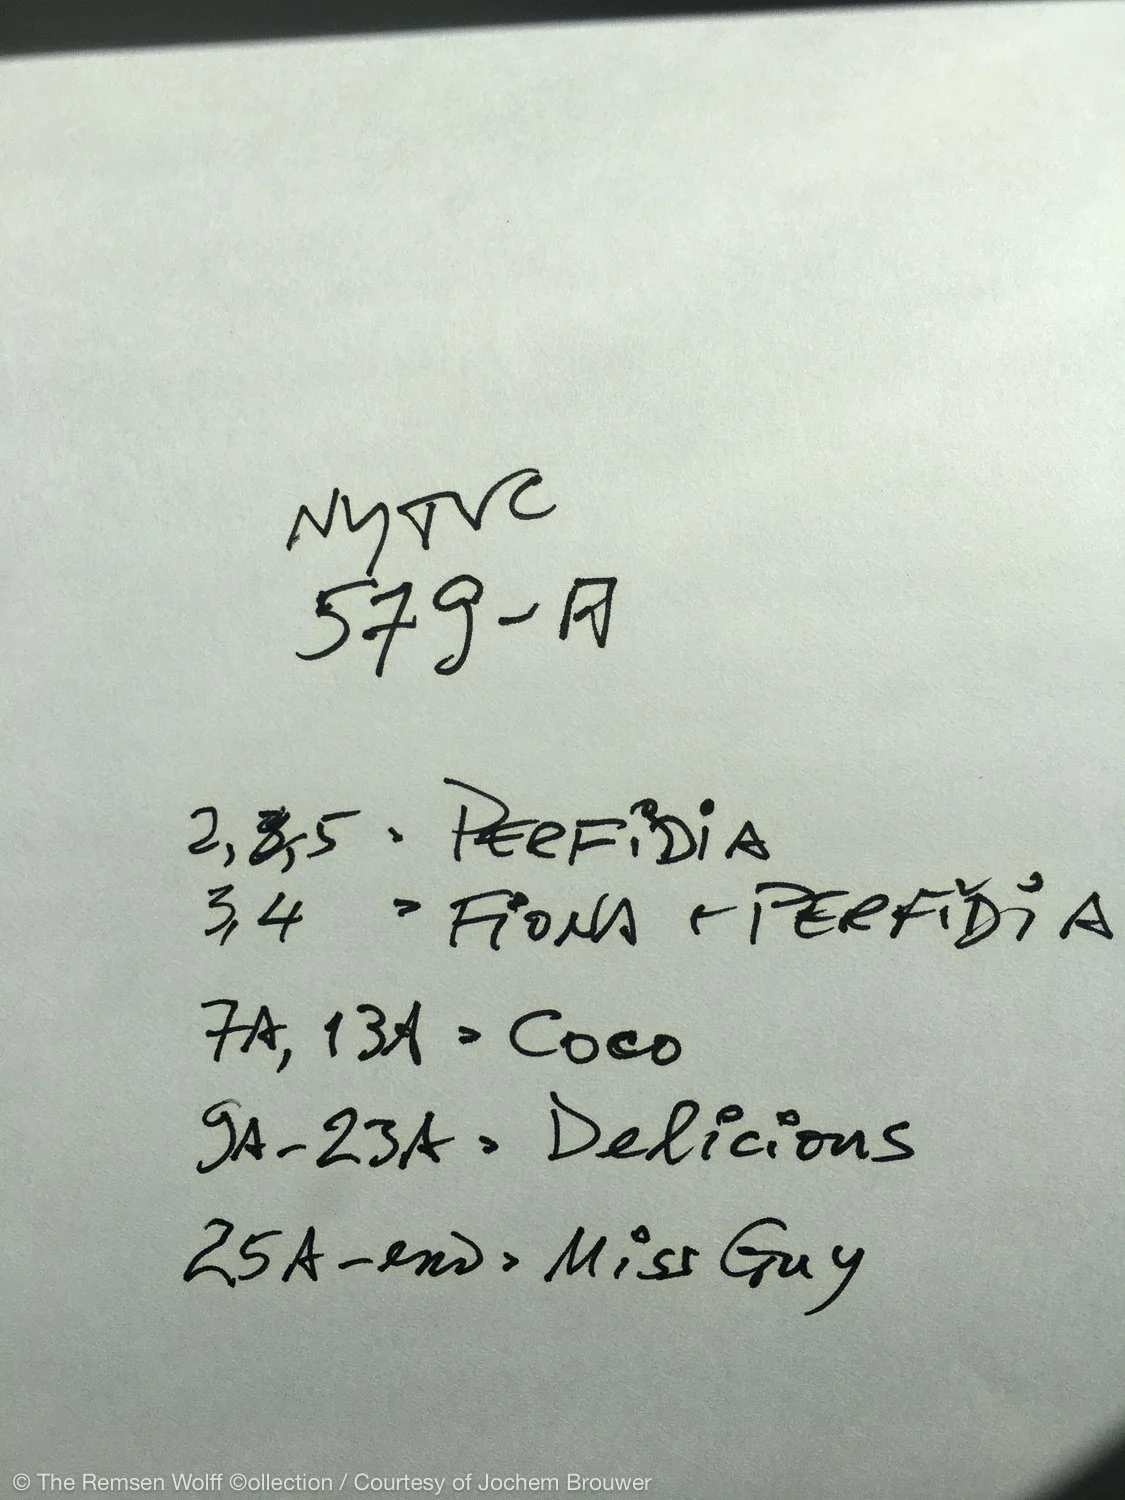 NYTVC
579-A
2, 3, 5 > PERFiDiA
3, 4 > FiONA + PERFiDiA
7A, 13A > Coco
9A-23A > Delicious
25A-end > Miss Guy
© The Remsen Wolff ©ollection / Courtesy of Jochem Brouwer